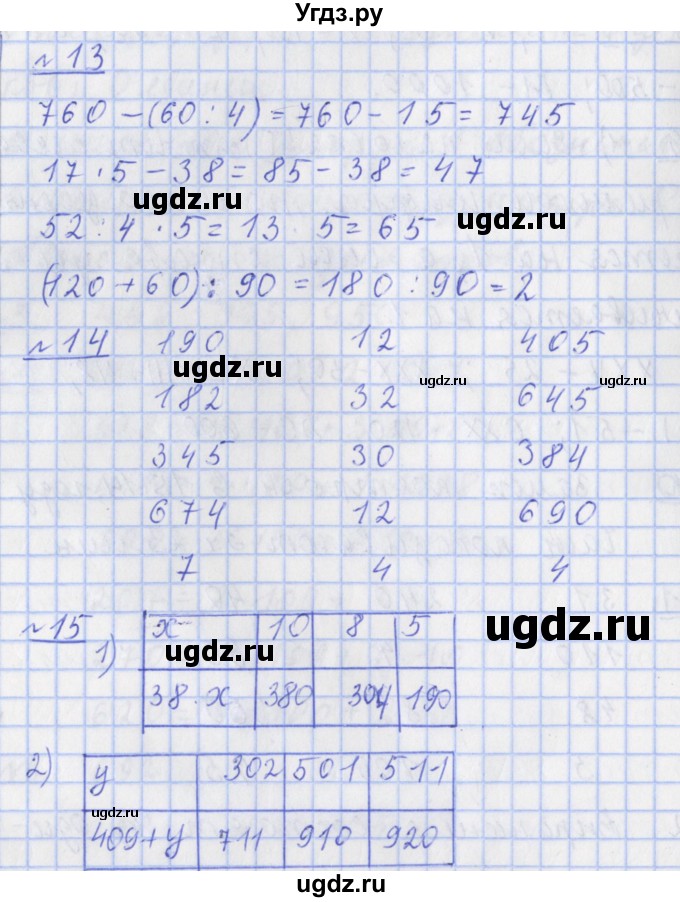 Угдз.ру
№13
760 - (60 : 4) = 760 - 15 = 745
17 · 5 - 38 = 85 - 38 = 47
ugdz.ru
ugdz.ru
52 : 4 · 5 = 13 · 5 = 65
(120 + 60) : 90 = 180 : 90 = 2
№14 190 12 405
ugdz.ru ugdz.ru ugdz.ru
182 32 645
345 30 384
674 12 690
7 4 4
№15
1)
x 10 8 5
ugdz.ru ugdz.ru
38 · x 380 304 190
2)
y 302 501 511
ugdz.ru
409 + y 711 910 920
ugdz.ru